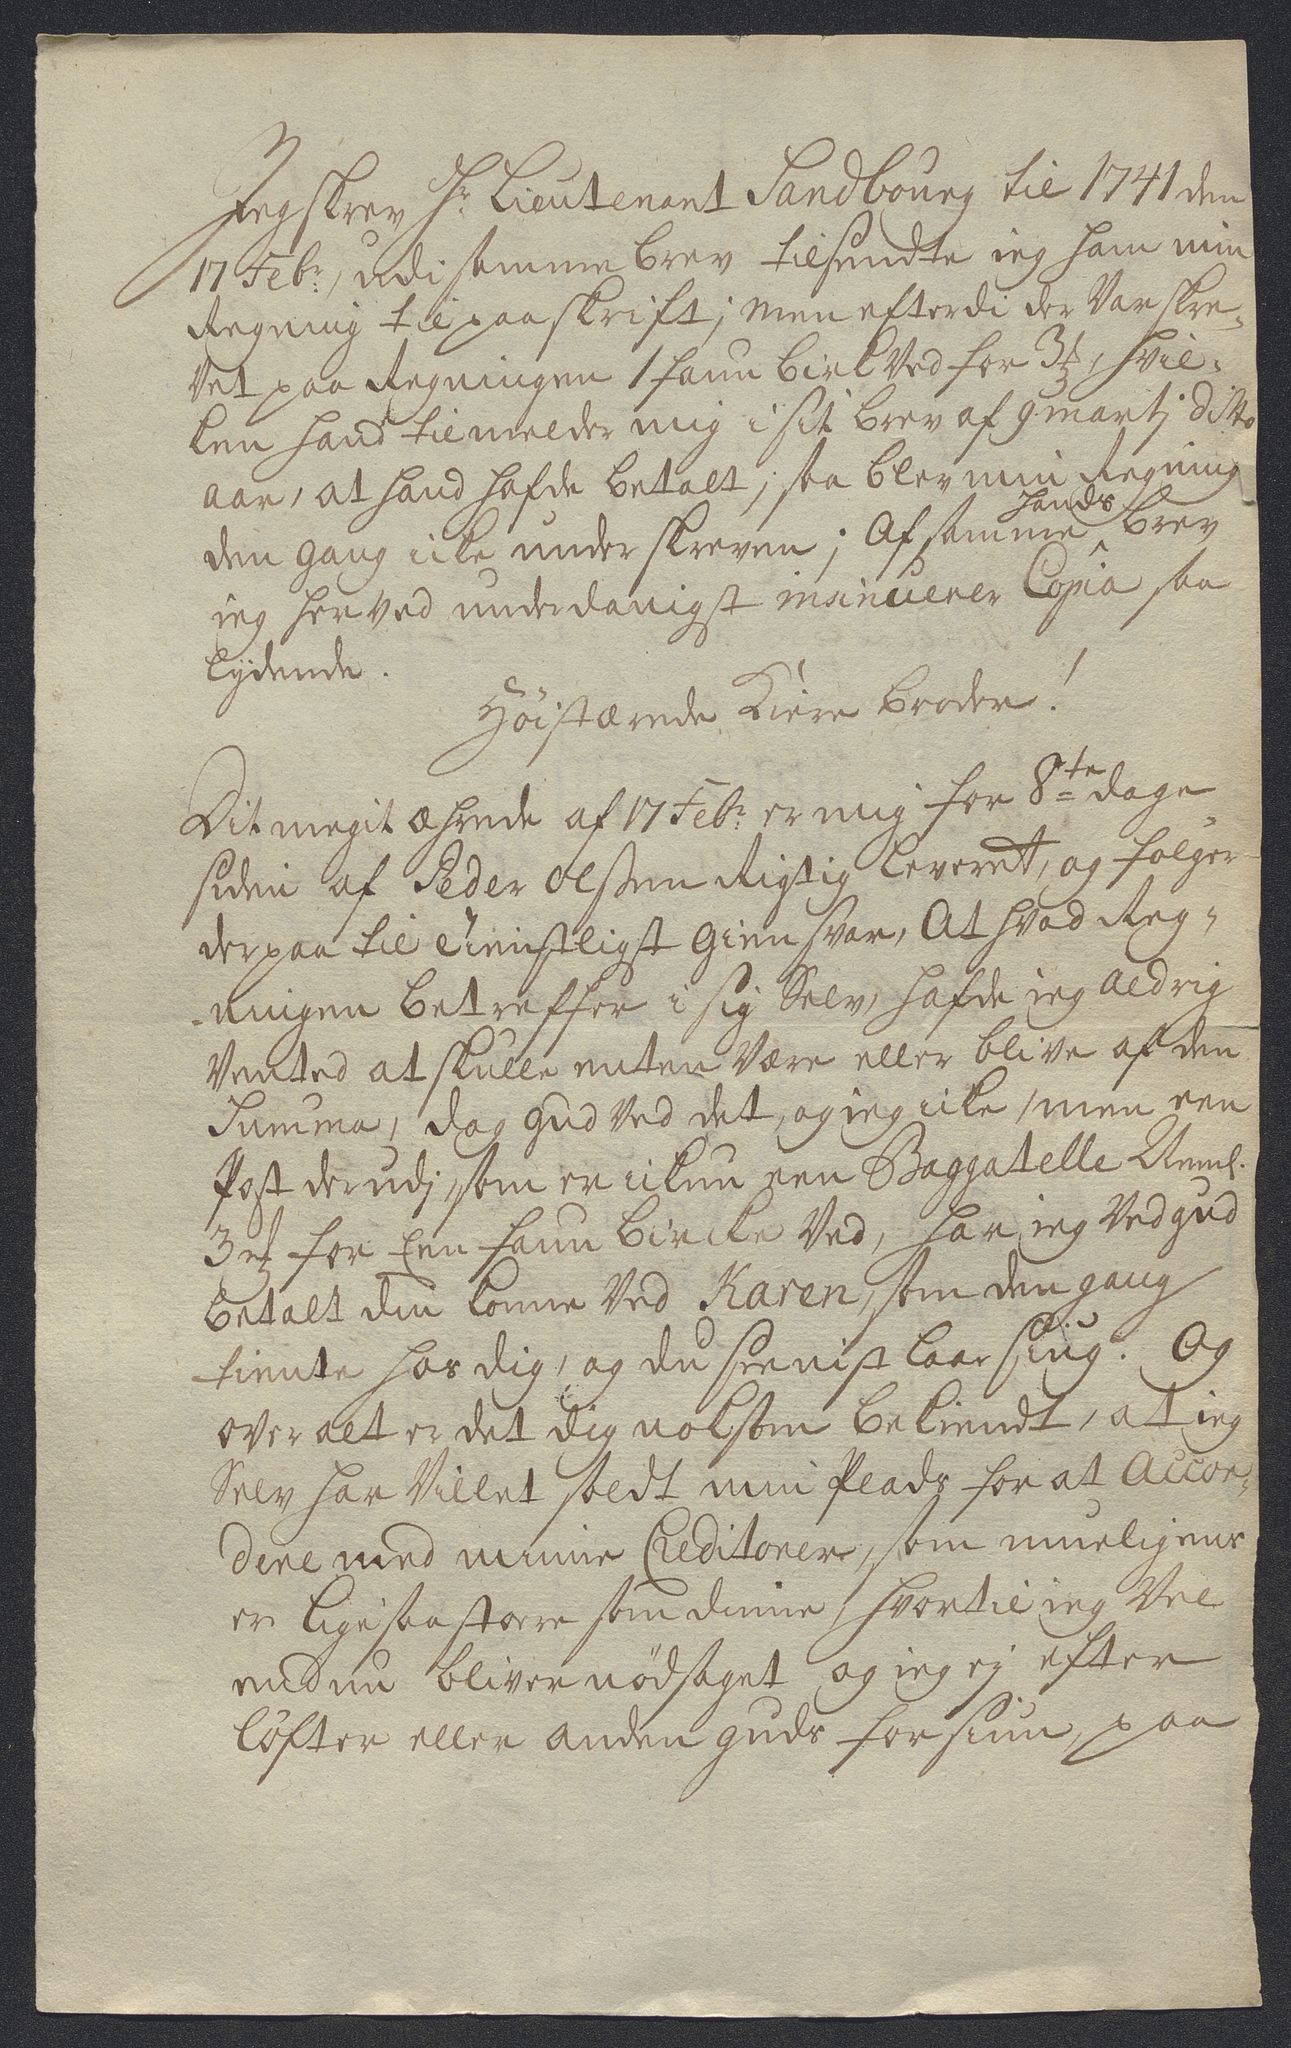 Jeg skrev Hr Lieutenant Sandbourg til 1741 den
17 Febr, udi samme brev tilsendte ieg ham min
Regning til paaskrift; men efterdi der Var skre-
Vet paa Regningen 1 faun birk Ved for 3, hvil-
ken hand tilmelder mig i sit brev af 9 martj ditto
aar, at hand hafde betalt; saa blev min Regning
den gang icke underskreven; Af samme hands brev
ieg herved underdanigst insinuerer Copia saa
lydende.
Höistærede Kiere broder!
Dit megit ærhede af 17 Febr er mig for 8te dage
siden af Peder Olssen Rigtig leverett, og følger
derpaa til tienstligst Giensvar, At hvad Reg-
ningen betreffer i sig Selv, hafde ieg aldrig
Vented at skulle enten Være eller blive af den
Summa, dog gud Ved det, og ieg icke, men een
Post derudj, som er ickun een Baggatelle Neml.
3 for Een faun bircke Ved, har ieg Ved gud
betalt din konne Ved Karen, som den gang
tiente hos dig, og du seenist laae siug. Og
over alt er det dig noksom bekiendt, at ieg
Selv har Villet soldt min Plads for at Accor-
dere med minne Creditorer, som mueligens
er ligesaa store som dinne, hvortil ieg Vel
endnu bliver nödsaget og ieg ej efter
löfter eller anden guds forsiun, paa